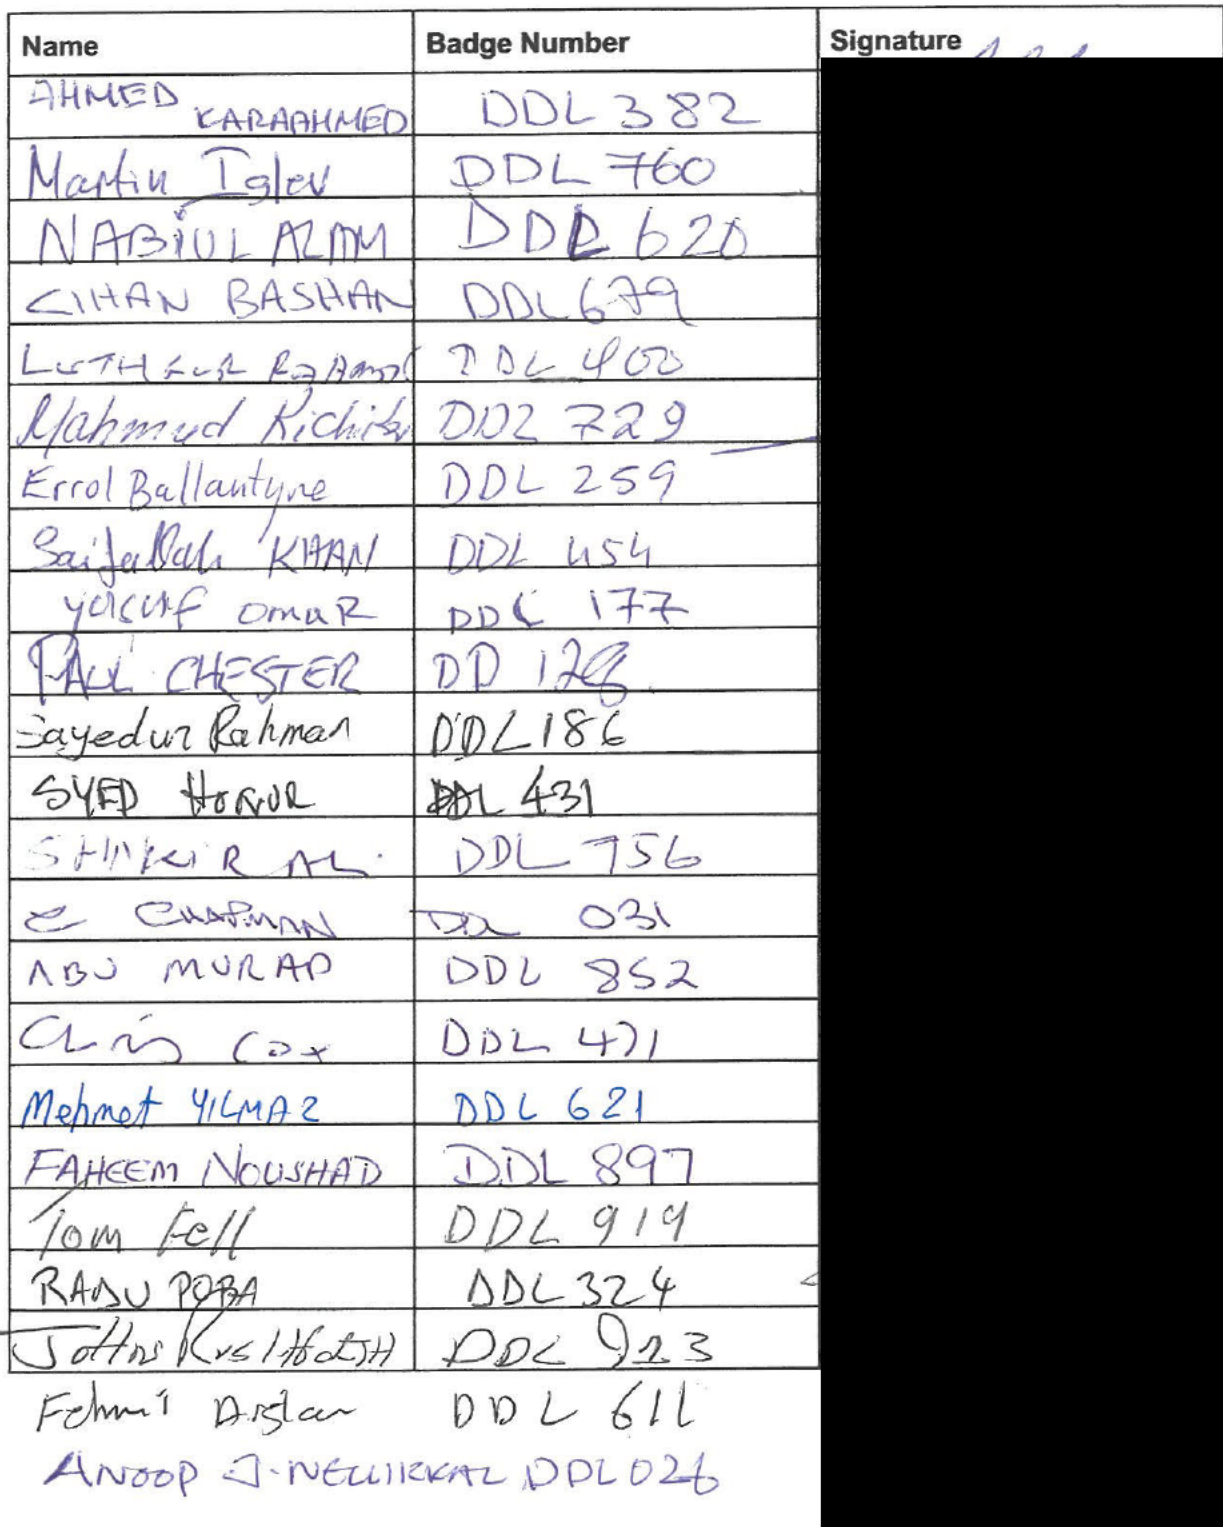 Name Badge Number Signature
AHMED KARAAHMED DDL 382
Martin Iglev DDL 760
NABIUL ALAM DDL 620
CIHAN BASHAN DDL 679
LUTHFUR DDL 400
Mahmud DDL 729
Errol Ballantyne DDL 259
Saifullah KHAN DDL 454
Yusuf OmaR DDL 177
PAUL CHESTER DD 128
Sayedur Rahman DDL 186
SYED HONUR DDL 431
SHAKIR ALI DDL 756
C CHAPMAN DDL 031
ABU MURAD DDL 852
Chris Cox DDL 471
Mehmet YILMAZ DDL 621
FAHEEM NOUSHAD DDL 897
Tom Fell DDL 919
RADU POPA DDL 324
DDL 923
Fehmi Arslan DDL 611
ANOOP J. DDL 026